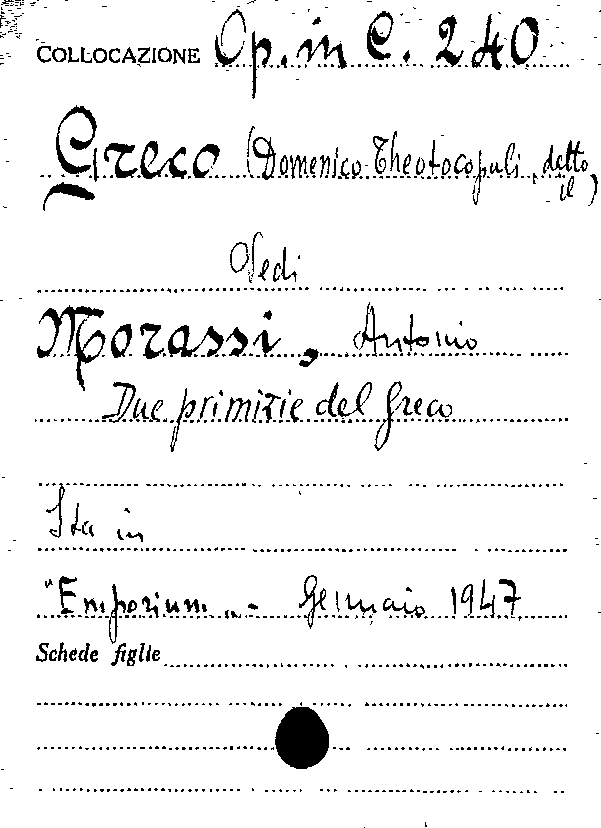 COLLOCAZIONE Op. in C. 240
Greco (Domenico Theotocopuli, detto
il)
Vedi
Morassi, Antonio
Due primizie del Greco
Sta in
"Emporium„ - Gennaio 1947
Schede figlie